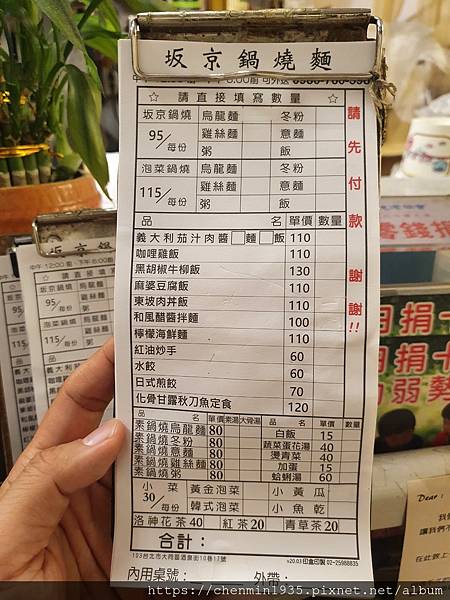 坂京鍋燒麵
☆ 請直接填寫數量 ☆
坂京鍋燒 烏龍麵 冬粉
95/每份 雞絲麵 意麵
粥 飯
泡菜鍋燒 烏龍麵 冬粉
115/每份 雞絲麵 意麵
粥 飯
請先付款 謝謝!!
品名 單價 數量
義大利茄汁肉醬□麵□飯 110
咖哩雞飯 110
黑胡椒牛柳飯 130
麻婆豆腐飯 110
東坡肉丼飯 110
和風醋醬拌麵 100
檸檬海鮮麵 110
紅油炒手 60
水餃 60
日式煎餃 70
化骨甘露秋刀魚定食 120
品名 單價 素湯 大骨湯 品名 單價 數量
素鍋燒烏龍麵 80 白飯 15
素鍋燒冬粉 80 蔬菜蛋花湯 40
素鍋燒意麵 80 燙青菜 40
素鍋燒雞絲麵 80 加蛋 15
素鍋燒粥 80 蛤蜊湯 60
小菜 黃金泡菜 小黃瓜
30/每份 韓式泡菜 小魚乾
洛神花茶 40 紅茶 20 青草茶 20
合計：
103台北市大同區酒泉街10巷17號
v20.03 印盒印製 02-25988835
內用桌號： 外帶：
坂京鍋
請直接填
坂京鍋燒
95/每份
泡菜鍋燒
115/每份
Dear：
https://chenmin1935.pixnet.net/album